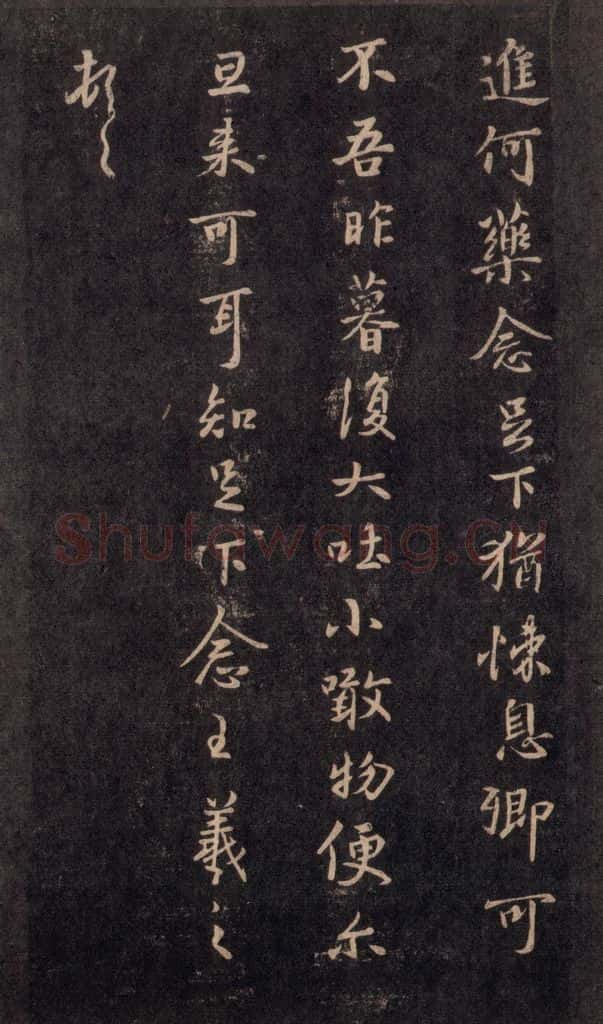 進何藥念足下猶悚息卿可
不吾昨暮復大吐小噉物便尔
旦来可耳知足下念王羲之
頓之
Shufawang.Cn